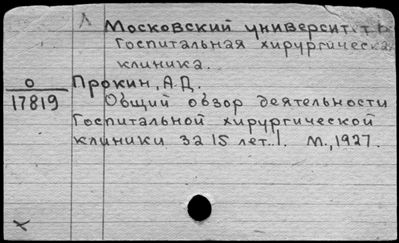 Л Московский университ.т.
Госпитальная хирургическа
клиника.
О Прокин, А.Д.
17819 Общий обзор деятельности
Госпитальной хирургической
клиники за 15 лет..I. М., 1927.